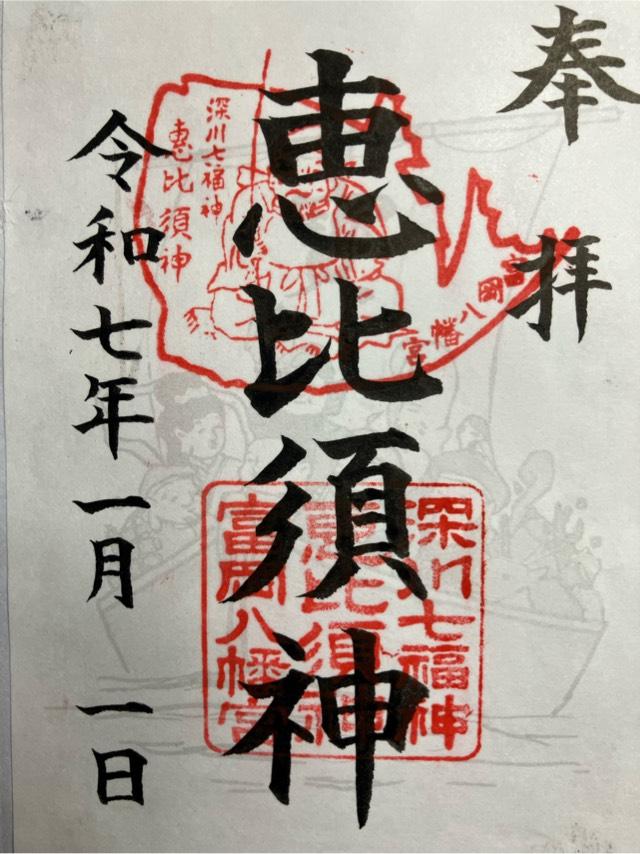 奉拝
恵比須神
令和七年一月一日
深川七福神
恵比須神
富岡八幡宮
深川七福神
恵比須神
富岡八幡宮